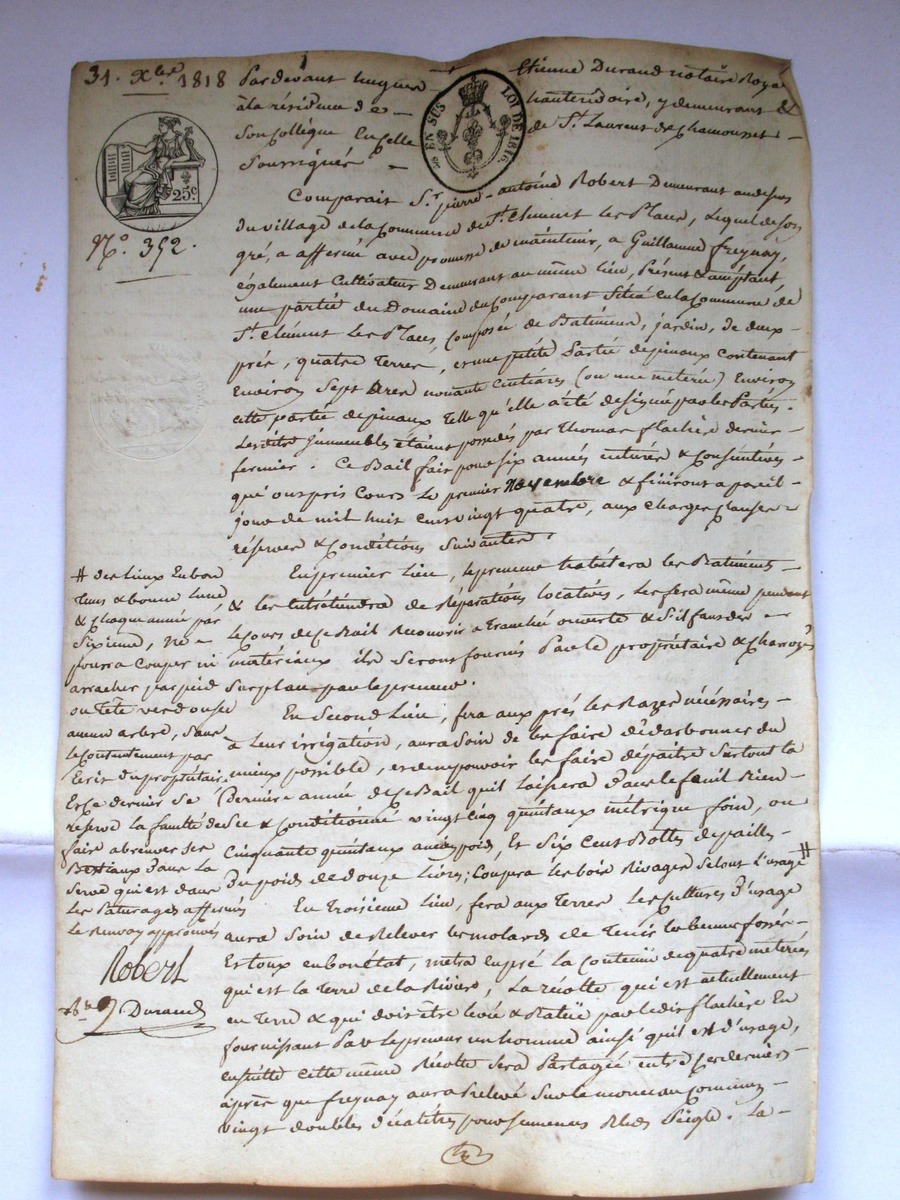 31. Xbre 1818
Pardevant hugues Etienne Durand notaire Royal
à la résidence de hauterivoire, y demeurant &
Son Collègue En celle de St. Laurent de Chamousset
Soussignés
EN SUS LOI DE 1816.
25c.
No. 392.
Comparait Sr. pierre-antoine Robert Demeurant au dessus
Du village de la Commune de St. Clément les Places, Lequel de son
gré, a affermé avec promesse de maintenir, a Guillaume freynay,
également Cultivateur Demeurant au même lieu, Présent & acceptant,
une partie du Domaine du Comparant Situé en la Commune de
St. Clément les Places, Composée de Batimens, jardin, de deux
prés, quatre Terres, et une petite Partie de pinaux Contenant
Environ Sept Ares nonante Centiares (ou une meterée) Environ
cette partie de pinaux Telle qu'elle a été designée par les Parties.
Lesdits Immeubles étaient possedés par Thomas flachère dernier
fermier. Ce Bail fait pour six années entières & Consécutives
qui ont pris Cours Le premier Novembre & finiront a pareil
jour de mil huit cent vingt quatre, aux Charges, Clauses
réserves & Conditions Suivantes.
En premier Lieu, le preneur habitera les Batiments
& les Entretiendra de Réparations locatives, Les fera même pendant
le cours de ce Bail Recouvrir a Tranchée ouverte & S'il faut des
matériaux ils Seront fournis Par le propriétaire & Charroyés
Sur place par le preneur.
En Second Lieu, fera aux prés les Razes nécéssaires
à Leur irrigation, aura Soin de les faire
mieux possible, et de ne pouvoir les faire dépaitre Surtout la
Dernière année de ce Bail qu'il Laissera Dans le fenil Bien
Sec & Conditionné vingt Cinq quintaux métrique foin, ou
Cinquante quintaux ancien poids, Et Six Cent Bottes de paille
Du poids de douze Livres; Coupera les bois Rivages Selon L'usage #
En Troisième Lieu, fera aux Terres Les Cultures D'usage
aura Soin de Relever les molards & de Tenir les bennes fossés
Et toux en bon état, metra en pré la Contenue de quatre meterées
qui est la Terre de la Rivière, La récolte qui est actuellement
en Terre & qui doit être levée & Batüe par ledit flachère En
fournissant Par le preneur un homme ainsi qu'il est d'usage,
ensuitte Cette même Récolte Sera Partagée entre ces derniers
après que freynay aura Relevé Sur le monceau Commun
vingt doubles décalitres pour semences Bled Seigle. La
# des Lieux En bon
Tems & bonne Lune
& chaque année par
Sixieme, Ne
pourra Couper ni
arracher par pied
ou Tête verd ou sec
aucun arbre, Sans
le Consentement par
Ecrit du propriétaire
Et Ce dernier Se
réserve la faculté de
faire abreuver Ses
Bestiaux Dans la
Serve qui est dans
Les Paturages affermés
Le Renvoy approuvé
Robert
Durand